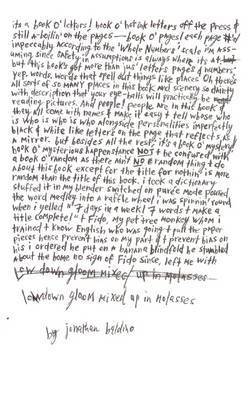 its a book o' letters! book o' hot ink letters off the press &
still a-boilin' on the pages — book o' pages! each page #'d
impeccably according to the 'Whole Numbers' scale I'm ass-
uming since safety in assumptions is always where its at
but this book's got more than jus' letters pages & numbers'
yep. words. words that spell out things like places. Oh there's
all sorts of so many places in this book and scenery so thick
with description that your eye-balls will practically be
reading pictures. And people! people are in this book &
they all come with names & make it easy t' tell whose who
is who is who alongside personalities imperfectly
black & white like letters on the page that reflect as if
a mirror. but besides all the rest: it's a book o' mystery
book o' mysterious happenstance NOT t' be confused with
a book o' random as there aint NO random thing t' do
about this book except for the title for nothin' is more
random than the title of this book. i took a dictionary
stuffed it in my blender switched on purée mode poured
the word medley into a raffle wheel i was spinnin' round
when i yelled "7 days in a week! 7 words t' make a
title complete!" t' Fido, my pet tree monkey whom i
trained t' know English who was going t' pull the paper
pieces hence prevent bias on my part & t' prevent bias on
his i ordered he put on a banana blindfold he stumbled
about the home no sign of Fido since, left me with
Low down gloom mixed up in Molasses
lowdown gloom mixed up in Molasses
by jonathan baldino